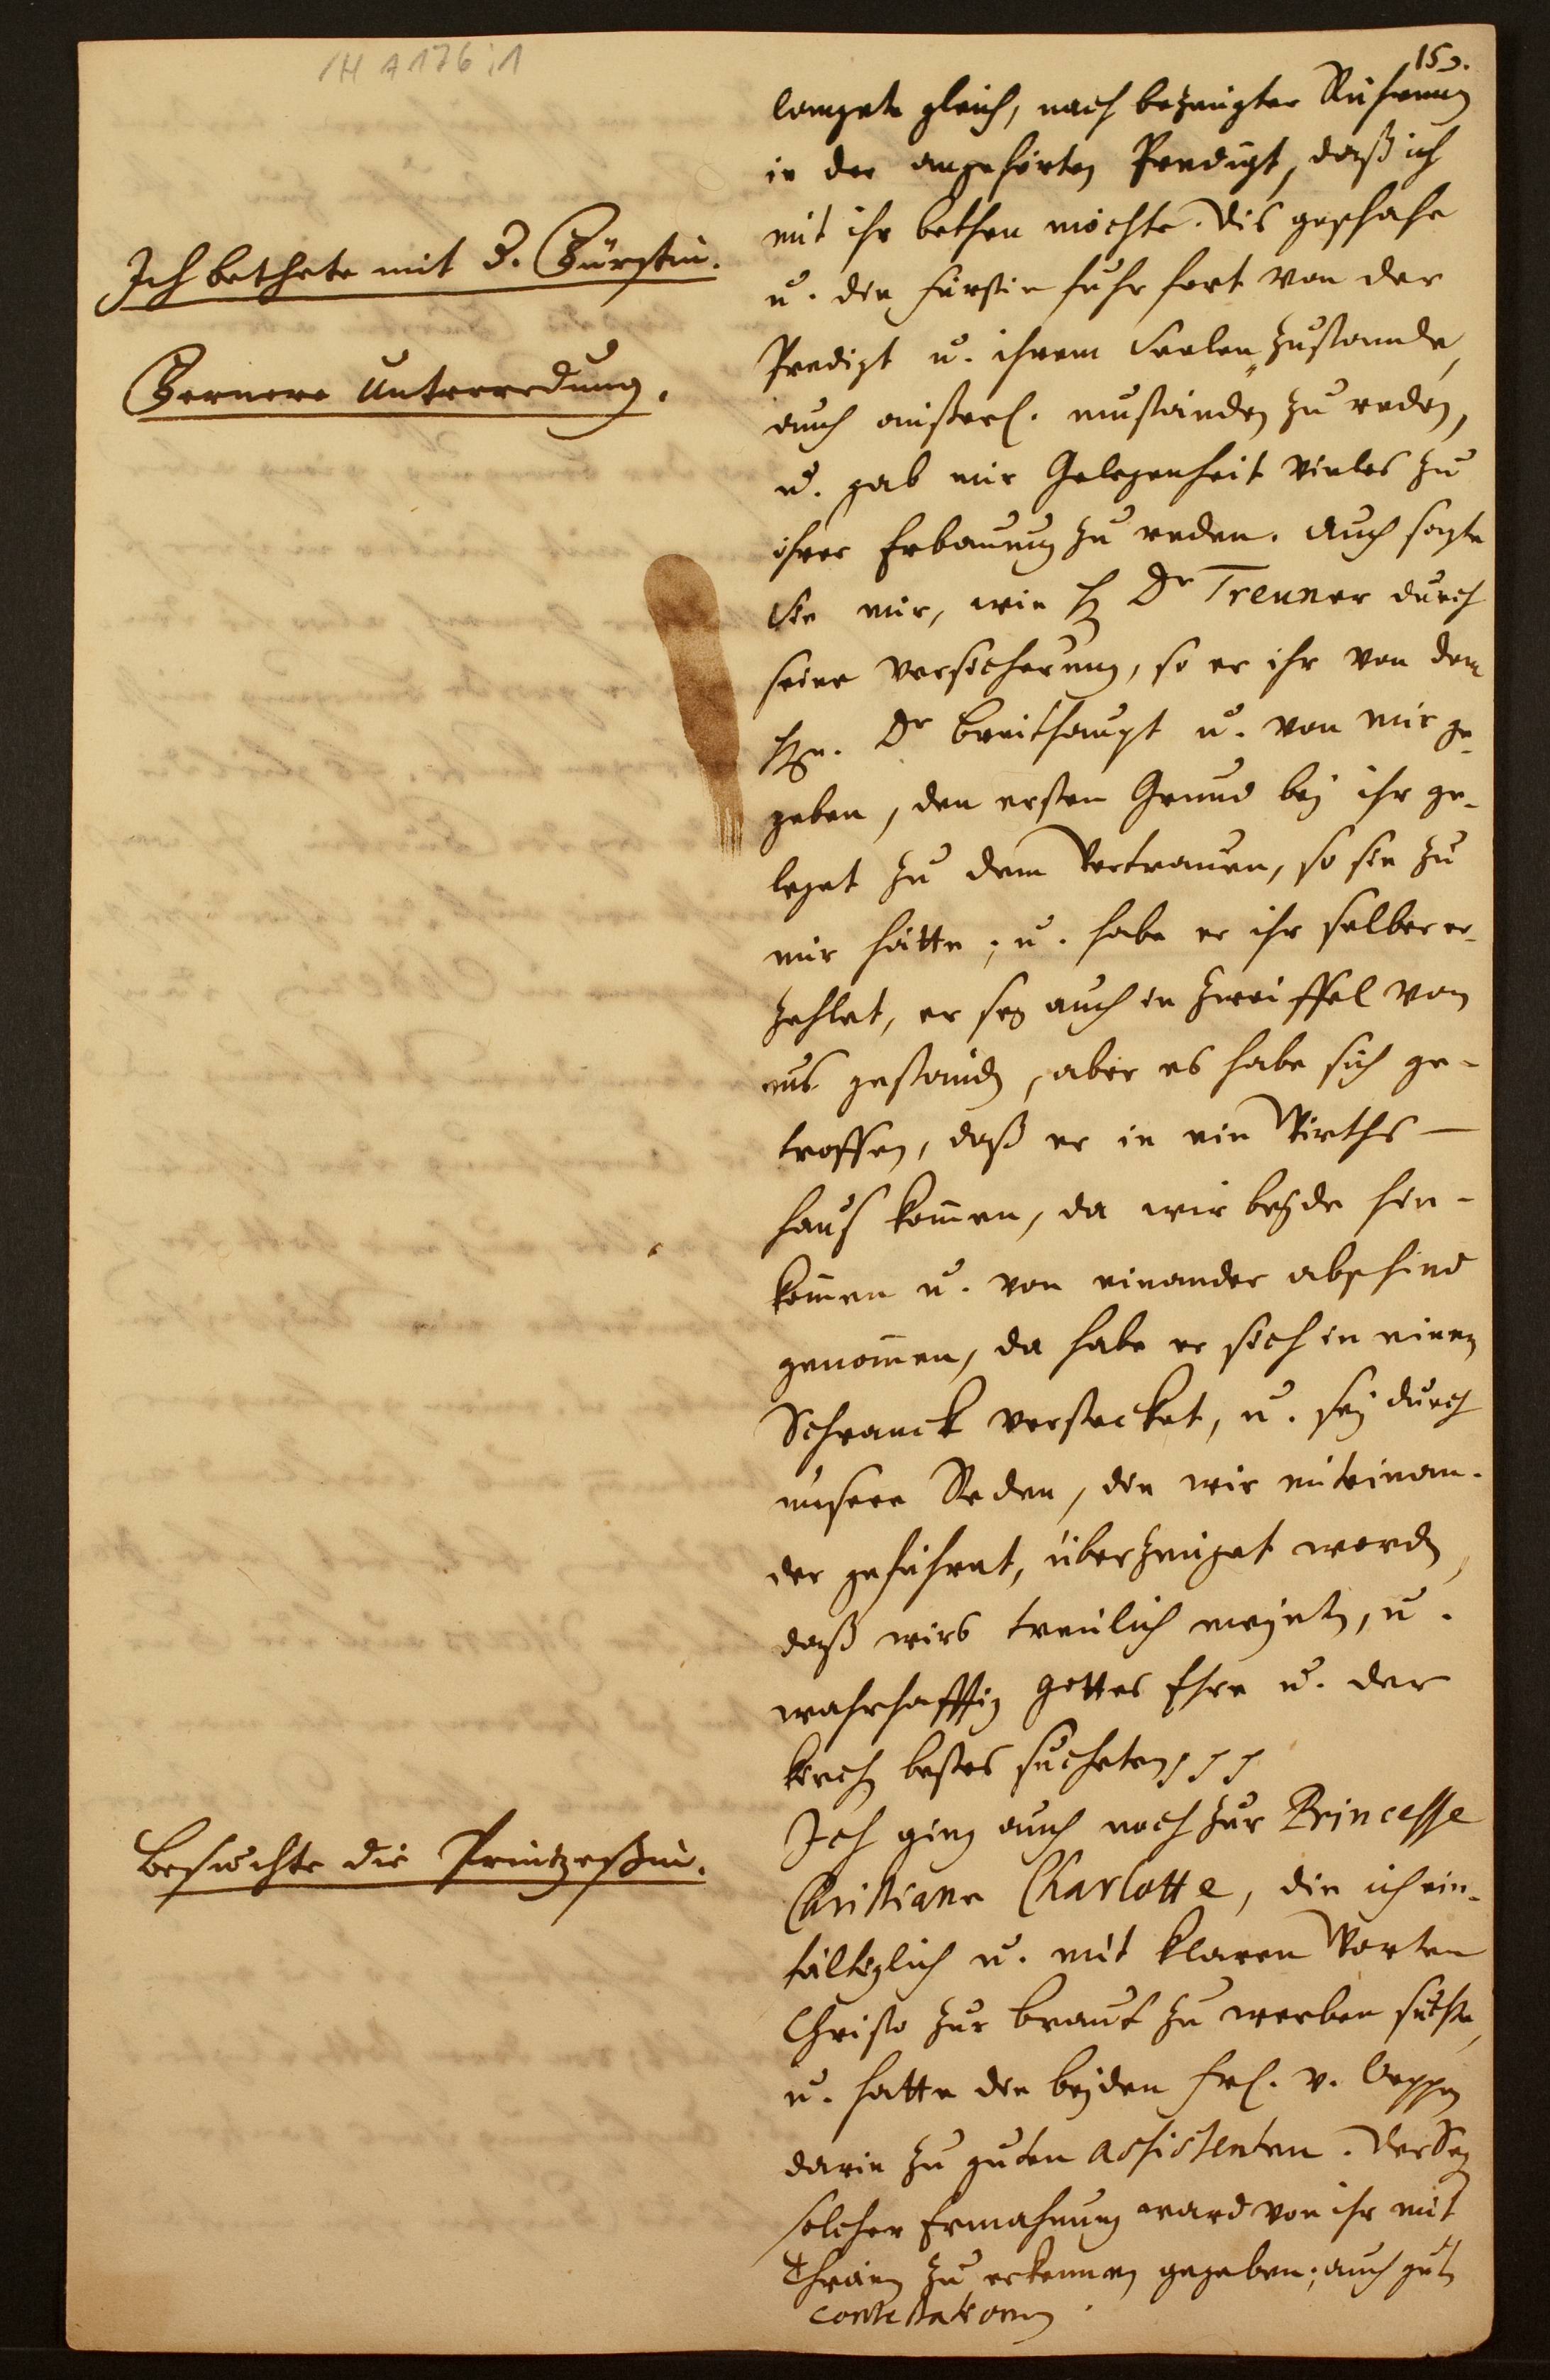 /H A 176 : 1
15
langete gleich, nach bezeugter Rührung
in der angehörten Predigt, daß ich
mit ihr bethen möchte. Dis geschahe
Ich bethete mit d. Fürstin.
u. die Fürstin fuhr fort von der
Predigt u. ihrem Seelen-Zustande,
Fernere Unterredung.
auch äußerl. umständen zu reden,
u. gab mir Gelegenheit vieles zu
ihrer Erbauung zu reden. Auch sagte
Sie mir, wie H Dr Treuner durch
seine Versicherung, so er ihr von dem
Hn. Dr Breithaupt u. von mir ge-
geben, den ersten Grund bey ihr ge-
leget zu dem Vertrauen, so sie zu
mir hätte; u. habe er ihr selber er-
zehlet, er sey auch in Zweiffel von
uns gestanden, aber es habe sich ge-
troffen, daß er in ein Wirths-
haus kommen, da wir beyde hin-
kommen u. von einander abschied
genommen, da habe er sich in einen
Schranck verstecket, u. sey durch
unsere Reden, die wir miteinan-
der geführet, überzeuget worden,
daß wirs treulich meynten, u.
wahrhafftig Gottes Ehre u. der
Kirchen bestes sucheten
Ich ging auch noch zur Princesse
Besuchte die Printzeßin.
Christiane Charlotte, die ich ein-
fältiglich u. mit klaren Worten
Christo zur Braut zu werben suchte,
u. hatte die beyden Frl. v.
darin zu guten assistenten. Der Segen
solcher Ermahnung ward von ihr mit
Thränen zu erkennen gegeben; auch guten
contestationen.